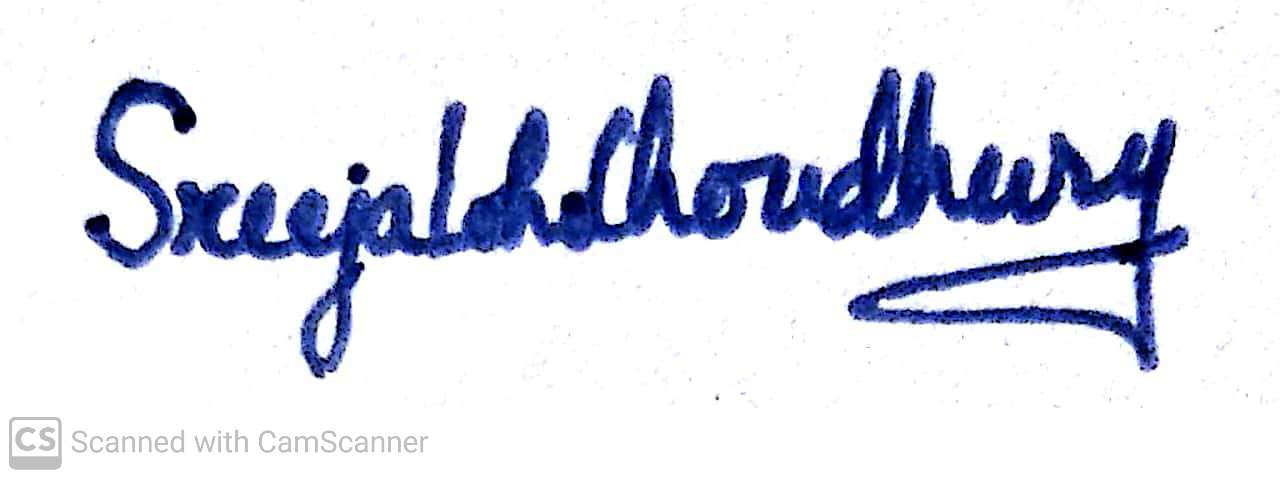 Sreeja Choudhury
CS Scanned with CamScanner